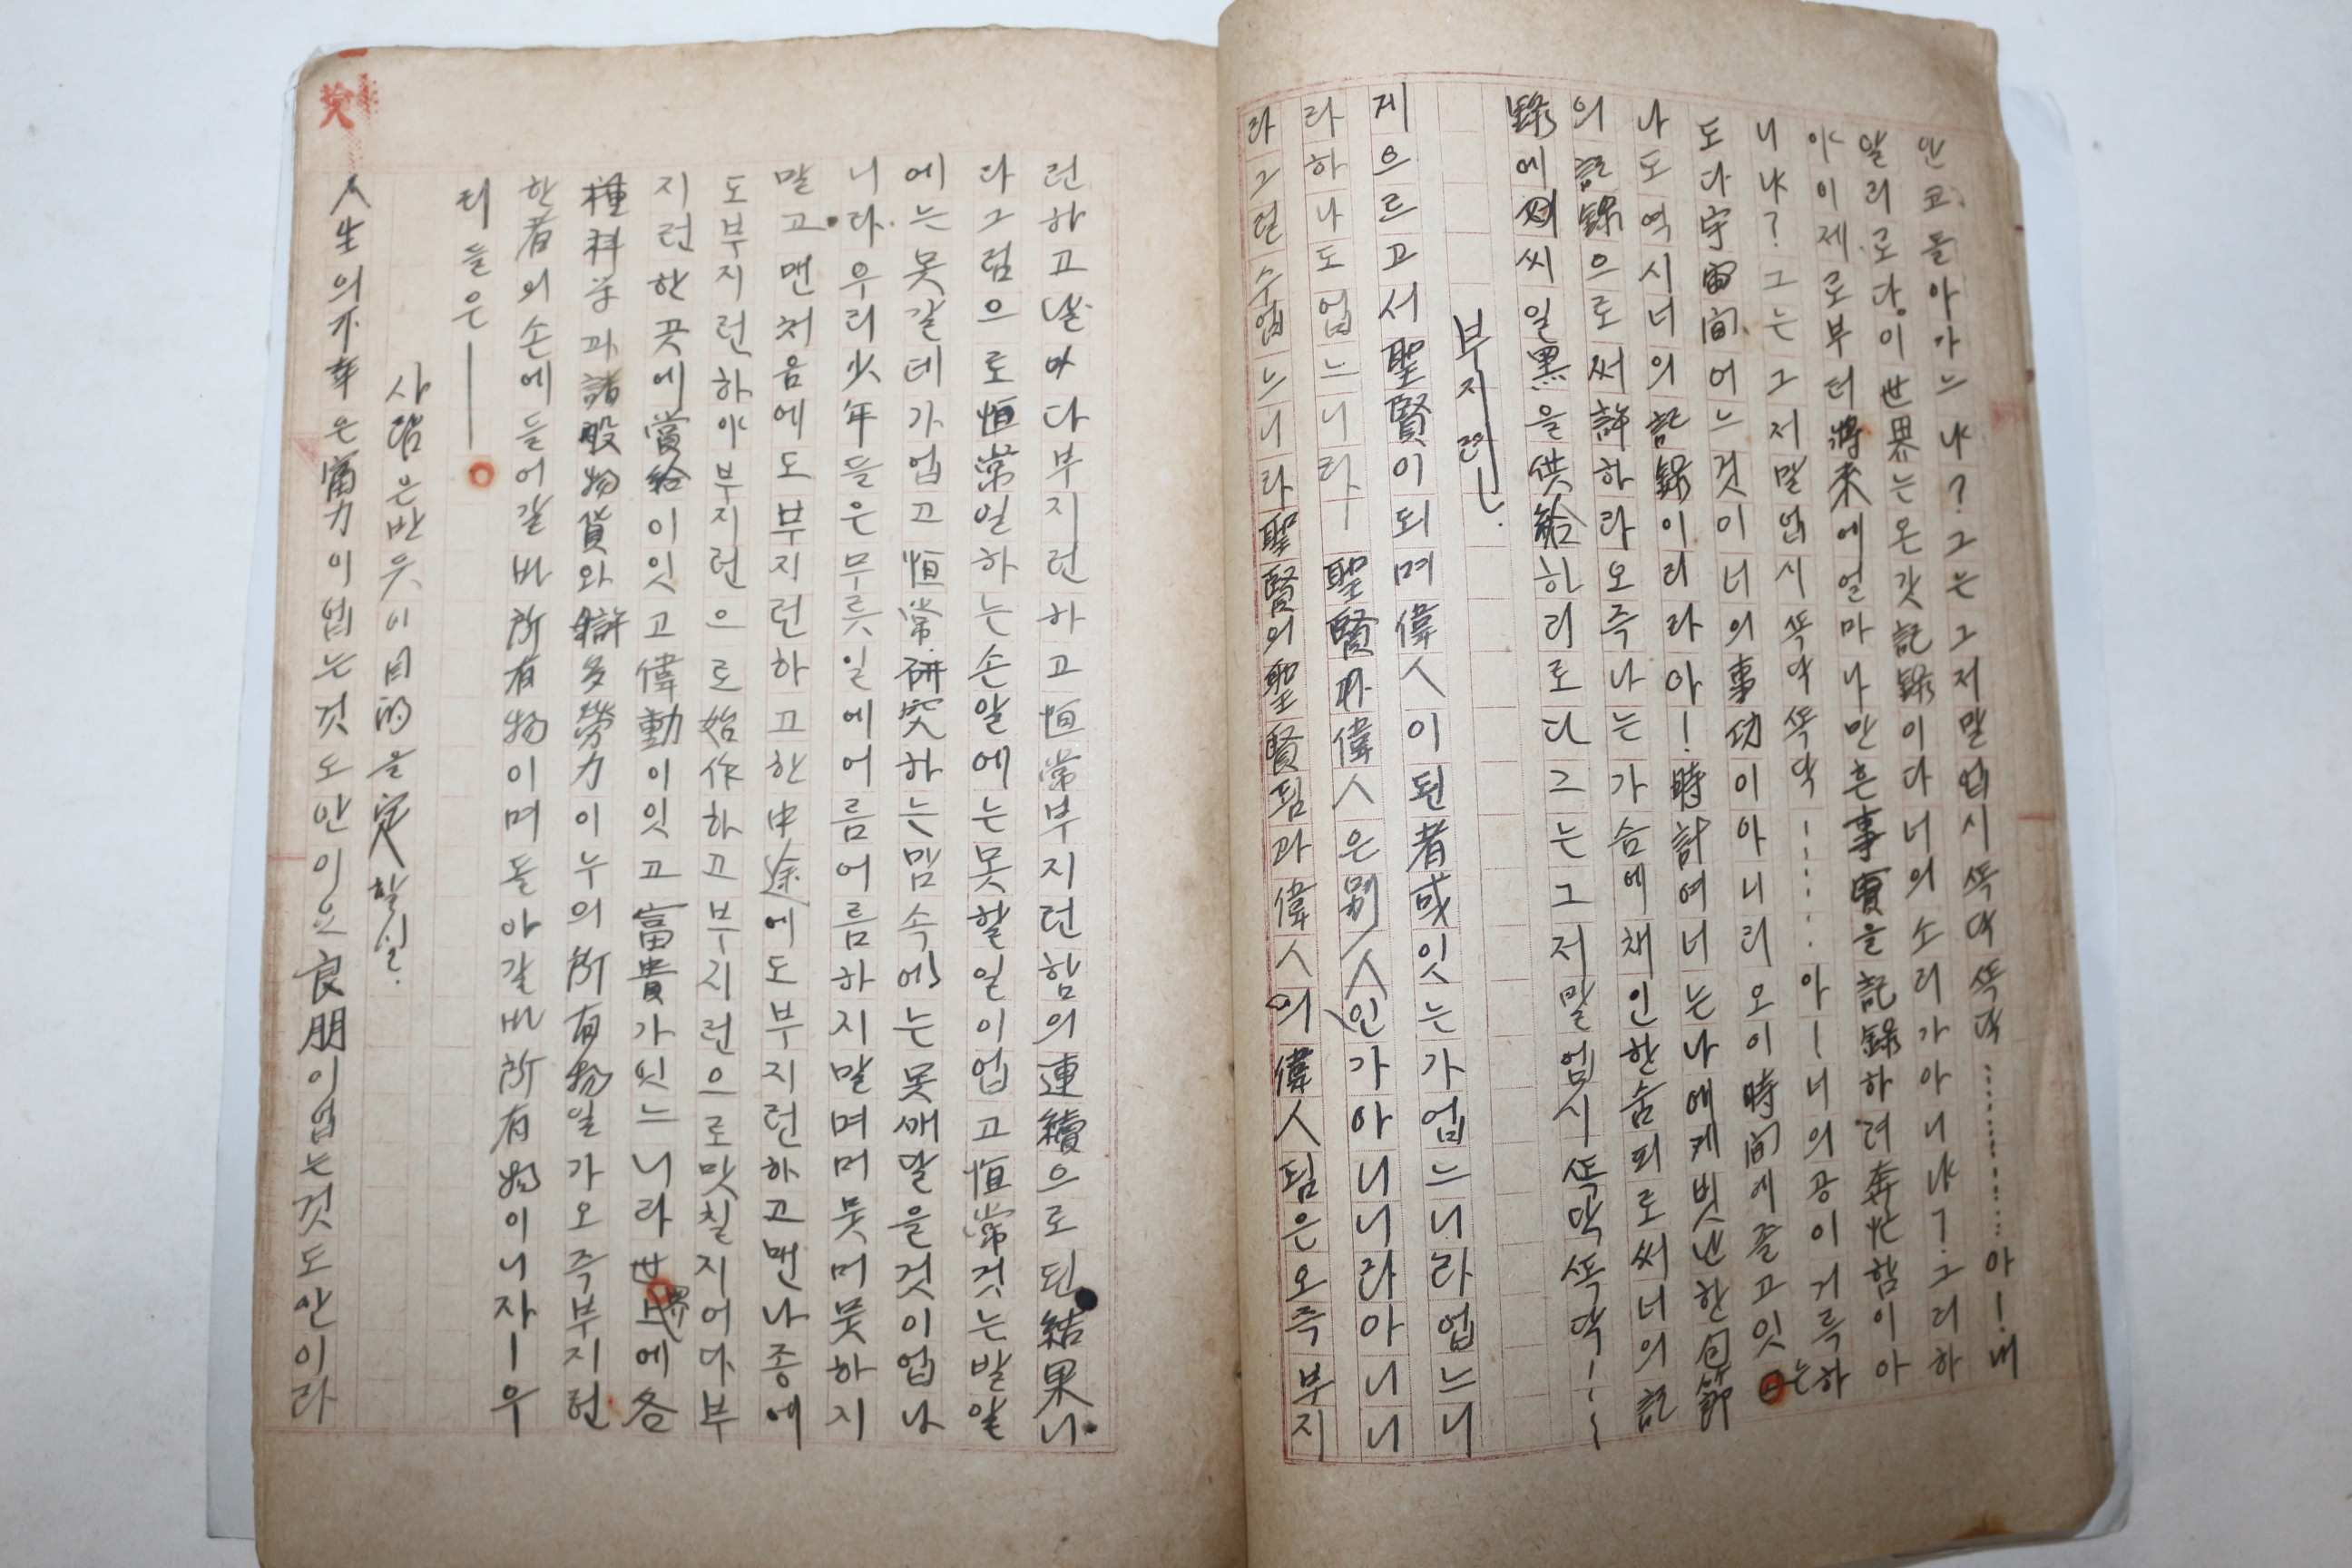 안코돌아가느냐?그는그저말업시쏙닥쏙닥…………아!내
알리로다.이世界는온갓記錄이다너의소리가아니냐?그러하
야이제로부터將來에얼마나만흔事實을記錄하려奔忙함이아
니냐?그는그저말업시쏙닥쏙닥!……아!너의공이거륵하
도다宇宙間어느것이너의事功이아니리오이時間에즐고잇는
나도역시너의記錄이리라아!時計여너는나에게빗난한句節
의記錄으로써許하라오즉나는가슴에채인한숨피로써너의記
錄에써일黑을供給하리로다그는그저말업시쏙닥쏙닥!~~
부지런.
게으르고서聖賢이되며偉人이된者或잇는가업느니라업느니
라하나도업느니라—聖賢과偉人은別人인가아니니라아니니
라그런수업느니라聖賢의聖賢됨과偉人의偉人됨은오즉부지
런하고날마다부지런하고恒常부지런함의連續으로된結果니
라그럼으로恒常일하는손알에는못할일이업고恒常것는발알
에는못갈데가업고恒常硏究하는맘속에는못깨달을것이업나
니라.우리少年들은무릇일에어름어름하지말며머뭇머뭇하지
말고맨처음에도부지런하고한中途에도부지런하고맨나종에
도부지런하야부지런으로始作하고부지런으로맛칠지어다부
지런한곳에當給이잇고偉動이잇고富貴가잇느니라世界에各
種科学과諸般物貨와許多勞力이누의所有物일가오즉부지런
한者의손에들어갈바所有物이며돌아갈바所有物이니자—우
리들은——。
사람은반듯이目的을定할일.
人生의不幸은富力이업는것도안이요良朋이업는것도안이라